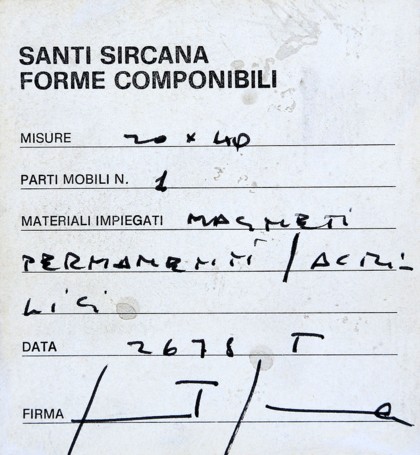 SANTI SIRCANA
FORME COMPONIBILI
MISURE 20 x 40
PARTI MOBILI N. 1
MATERIALI IMPIEGATI MAGNETI
PERMANENTI / ACRI-
LICI
DATA 2678 T
FIRMA